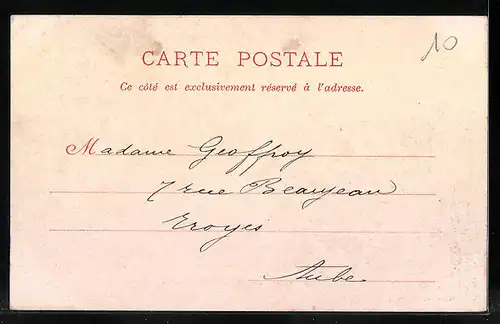 CARTE POSTALE
10
Ce côté est exclusivement réservé à l'adresse.
Madame Geoffroy
7 rue Beaujean
Troyes
Aube